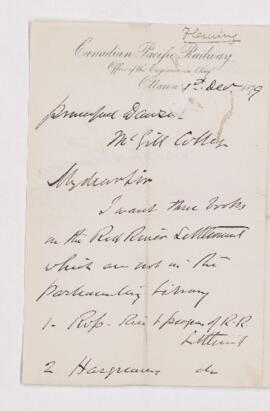 Fleming
Canadian Pacific Railway
Office of the Engineer in Chief
Ottawa 1st Decr 1879
Principal Dawson
McGill College
My dear Sir
I want three books
on the Red River Settlement
which are not in the
Parliamentary Library
1- Ross. Rise & progress of R.R.
Settlement
2 Hargrave do